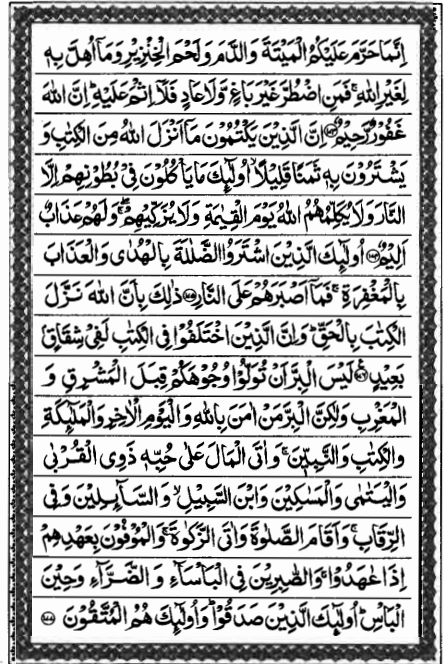 اِنَّمَا حَرَّمَ عَلَیْكُمُ الْمَیْتَةَ وَالدَّمَ وَلَحْمَ الْخِنْزِیْرِ وَمَاۤ اُهِلَّ بِهٖ
لِغَیْرِ اللّٰهِ ۚ فَمَنِ اضْطُرَّ غَیْرَ بَاغٍ وَّلَا عَادٍ فَلَاۤ اِثْمَ عَلَیْهِ ؕ اِنَّ اللّٰهَ
غَفُوْرٌ رَّحِیْمٌ ۝ اِنَّ الَّذِیْنَ یَكْتُمُوْنَ مَاۤ اَنْزَلَ اللّٰهُ مِنَ الْكِتٰبِ وَ
یَشْتَرُوْنَ بِهٖ ثَمَنًا قَلِیْلًا ۙ اُولٰٓىِٕكَ مَا یَاْكُلُوْنَ فِیْ بُطُوْنِهِمْ اِلَّا
النَّارَ وَلَا یُكَلِّمُهُمُ اللّٰهُ یَوْمَ الْقِیٰمَةِ وَلَا یُزَكِّیْهِمْ ۖۚ وَلَهُمْ عَذَابٌ
اَلِیْمٌ ۝ اُولٰٓىِٕكَ الَّذِیْنَ اشْتَرَوُا الضَّلٰلَةَ بِالْهُدٰی وَالْعَذَابَ
بِالْمَغْفِرَةِ ۚ فَمَاۤ اَصْبَرَهُمْ عَلَی النَّارِ ۝ ذٰلِكَ بِاَنَّ اللّٰهَ نَزَّلَ
الْكِتٰبَ بِالْحَقِّ ؕ وَاِنَّ الَّذِیْنَ اخْتَلَفُوْا فِی الْكِتٰبِ لَفِیْ شِقَاقٍۭ
بَعِیْدٍ ۝ لَیْسَ الْبِرَّ اَنْ تُوَلُّوْا وُجُوْهَكُمْ قِبَلَ الْمَشْرِقِ وَ
الْمَغْرِبِ وَلٰكِنَّ الْبِرَّ مَنْ اٰمَنَ بِاللّٰهِ وَالْیَوْمِ الْاٰخِرِ وَالْمَلٰٓىِٕكَةِ
وَالْكِتٰبِ وَالنَّبِیّٖنَ ۚ وَاٰتَی الْمَالَ عَلٰی حُبِّهٖ ذَوِی الْقُرْبٰی
وَالْیَتٰمٰی وَالْمَسٰكِیْنَ وَابْنَ السَّبِیْلِ ۙ وَالسَّآىِٕلِیْنَ وَفِی
الرِّقَابِ ۚ وَاَقَامَ الصَّلٰوةَ وَاٰتَی الزَّكٰوةَ ۚ وَالْمُوْفُوْنَ بِعَهْدِهِمْ
اِذَا عٰهَدُوْا ۚ وَالصّٰبِرِیْنَ فِی الْبَاْسَآءِ وَالضَّرَّآءِ وَحِیْنَ
الْبَاْسِ ؕ اُولٰٓىِٕكَ الَّذِیْنَ صَدَقُوْا ؕ وَاُولٰٓىِٕكَ هُمُ الْمُتَّقُوْنَ ۝